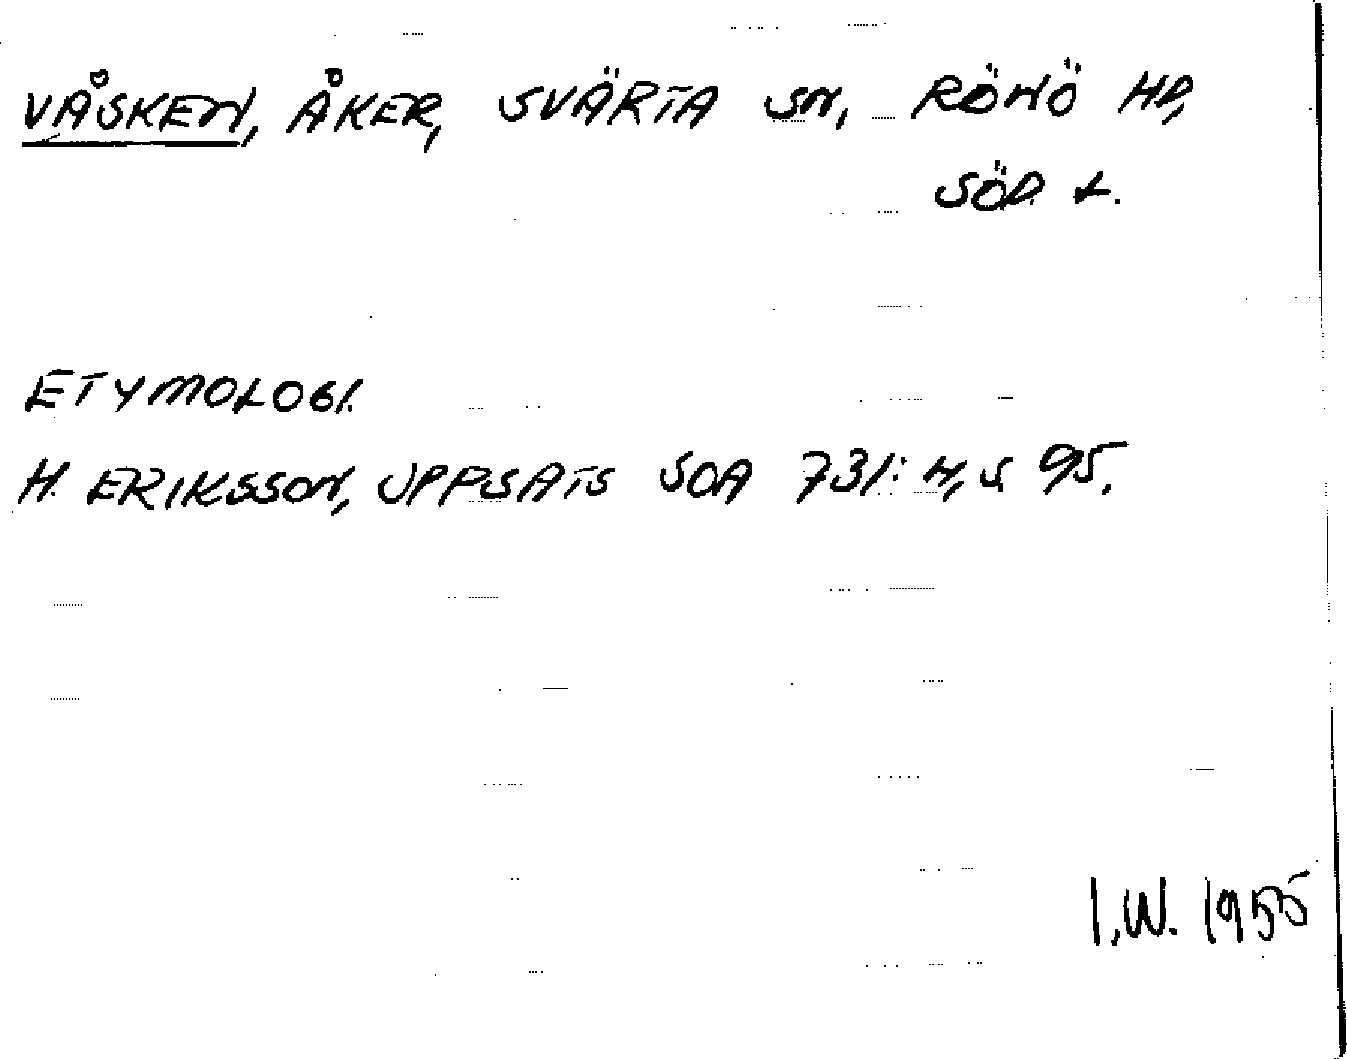 VÅSKEN, ÅKER, SVÄRTA SN, RÖNÖ HD,
SÖD. L.
ETYMOLOGI.
H. ERIKSSON, UPPSATS SOA 731: 4, S 95.
I.W. 1955